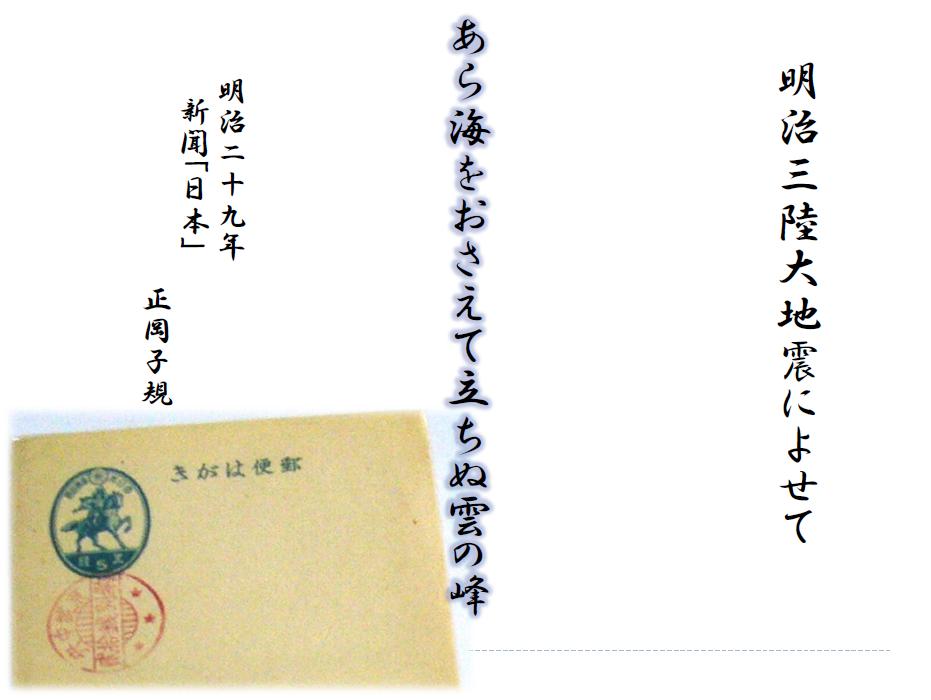 明治三陸大地震によせて
あら海をおさえて立ちぬ雲の峰
明治二十九年
新聞「日本」
正岡子規
郵便はがき
5